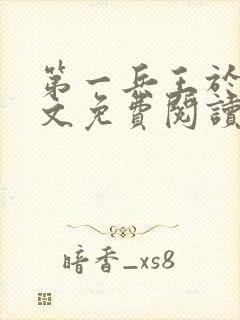 第一兵王於
文免費閱讀
暗香_xs8